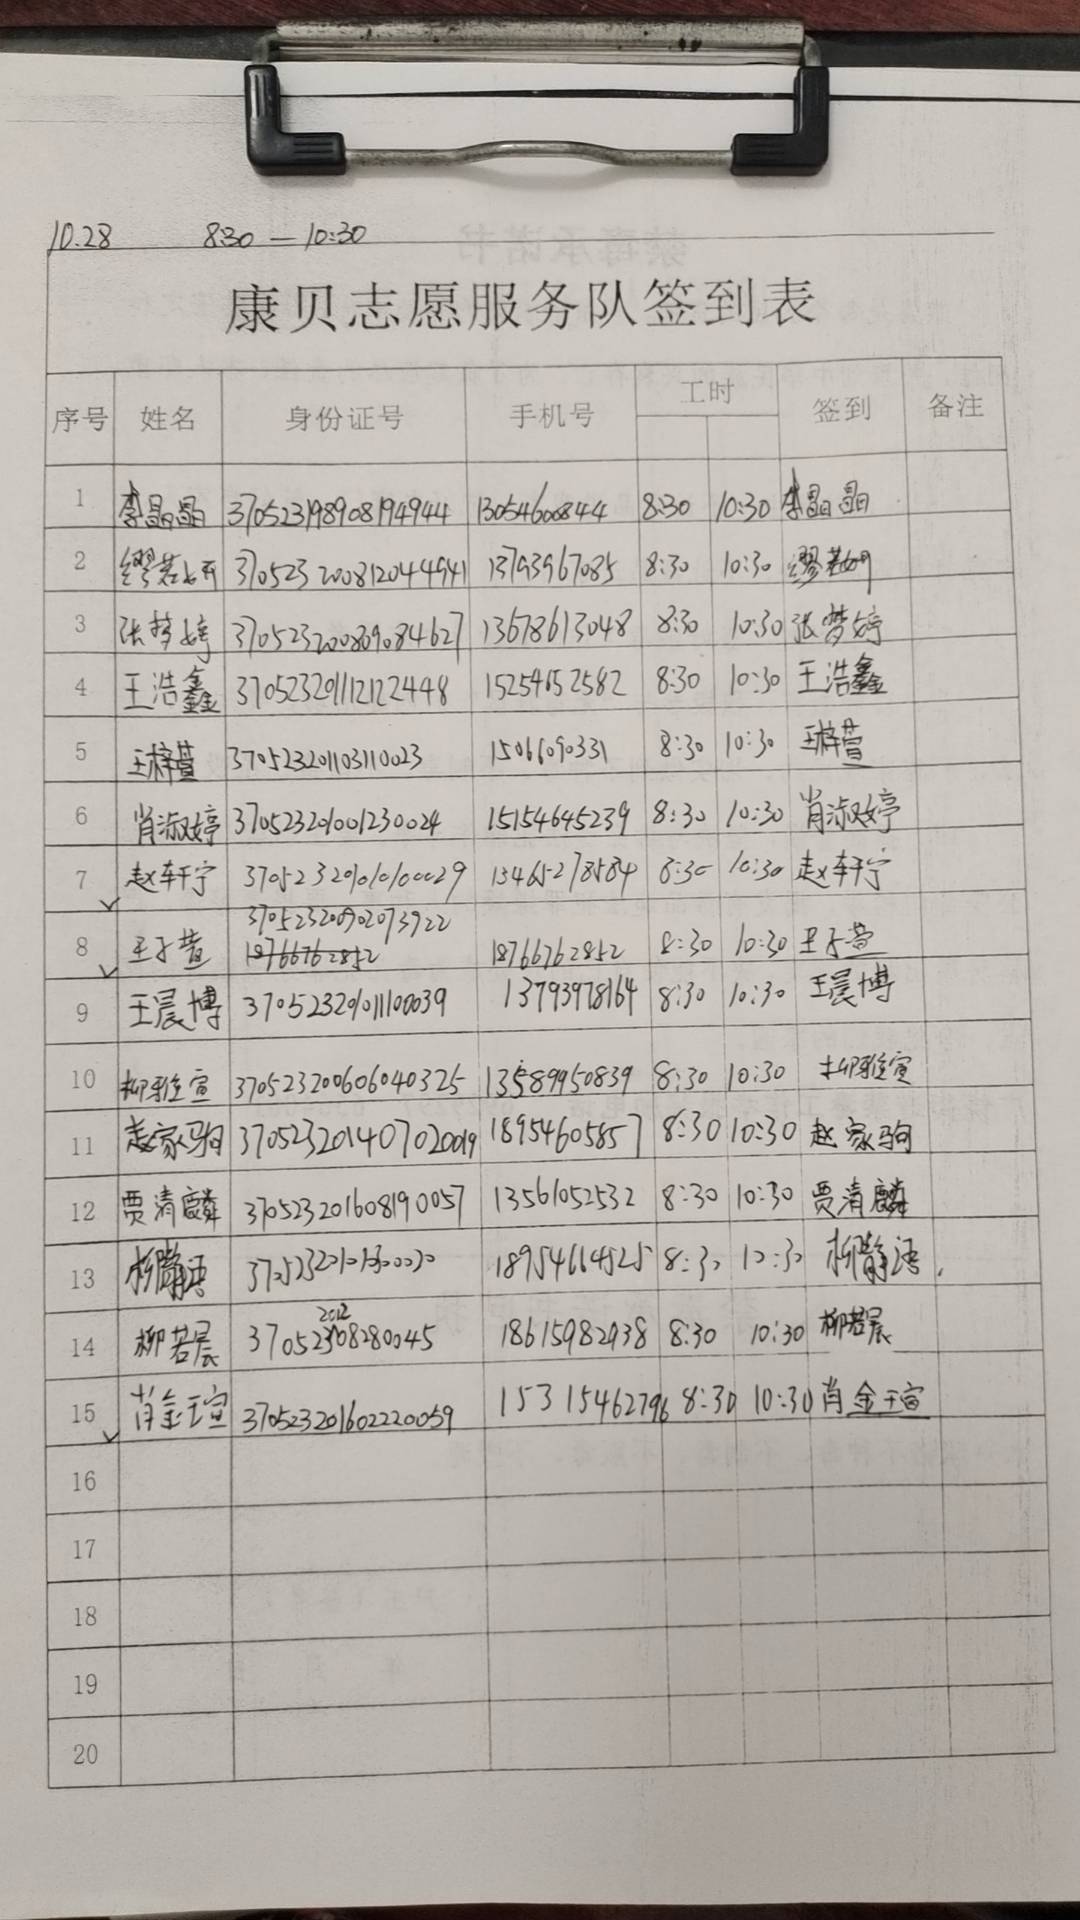 10.28 8:30 — 10:30
康贝志愿服务队签到表
序号 姓名 身份证号 手机号 工时 签到 备注
1 李晶晶 370523198908194944 13054600844 8:30 10:30 李晶晶
2 缪若妍 370523200812044941 13793967085 8:30 10:30 缪若妍
3 张梦婷 370523200809084627 13678613048 8:30 10:30 张梦婷
4 王浩鑫 370523201112122448 15254652582 8:30 10:30 王浩鑫
5 王梓萱 370523201103110023 15066090331 8:30 10:30 王梓萱
6 肖淑婷 370523201001230024 15154645239 8:30 10:30 肖淑婷
7 赵轩宁 370523201010100029 13465278584 8:30 10:30 赵轩宁
8 王子萱 370523200902073922 18766762852 18766762852 8:30 10:30 王子萱
9 王晨博 370523201011100039 13793978164 8:30 10:30 王晨博
10 柳雅宣 370523200606040325 13589950839 8:30 10:30 柳雅宣
11 赵家驹 370523201407020019 18954605857 8:30 10:30 赵家驹
12 贾清麟 370523201608190057 13561052532 8:30 10:30 贾清麟
13 柳静语 18954664525 8:30 10:30 柳静语
14 柳若晨 370523201208280045 18615982938 8:30 10:30 柳若晨
15 肖金玉宣 370523201602220059 15315462796 8:30 10:30 肖金玉宣
16
17
18
19
20